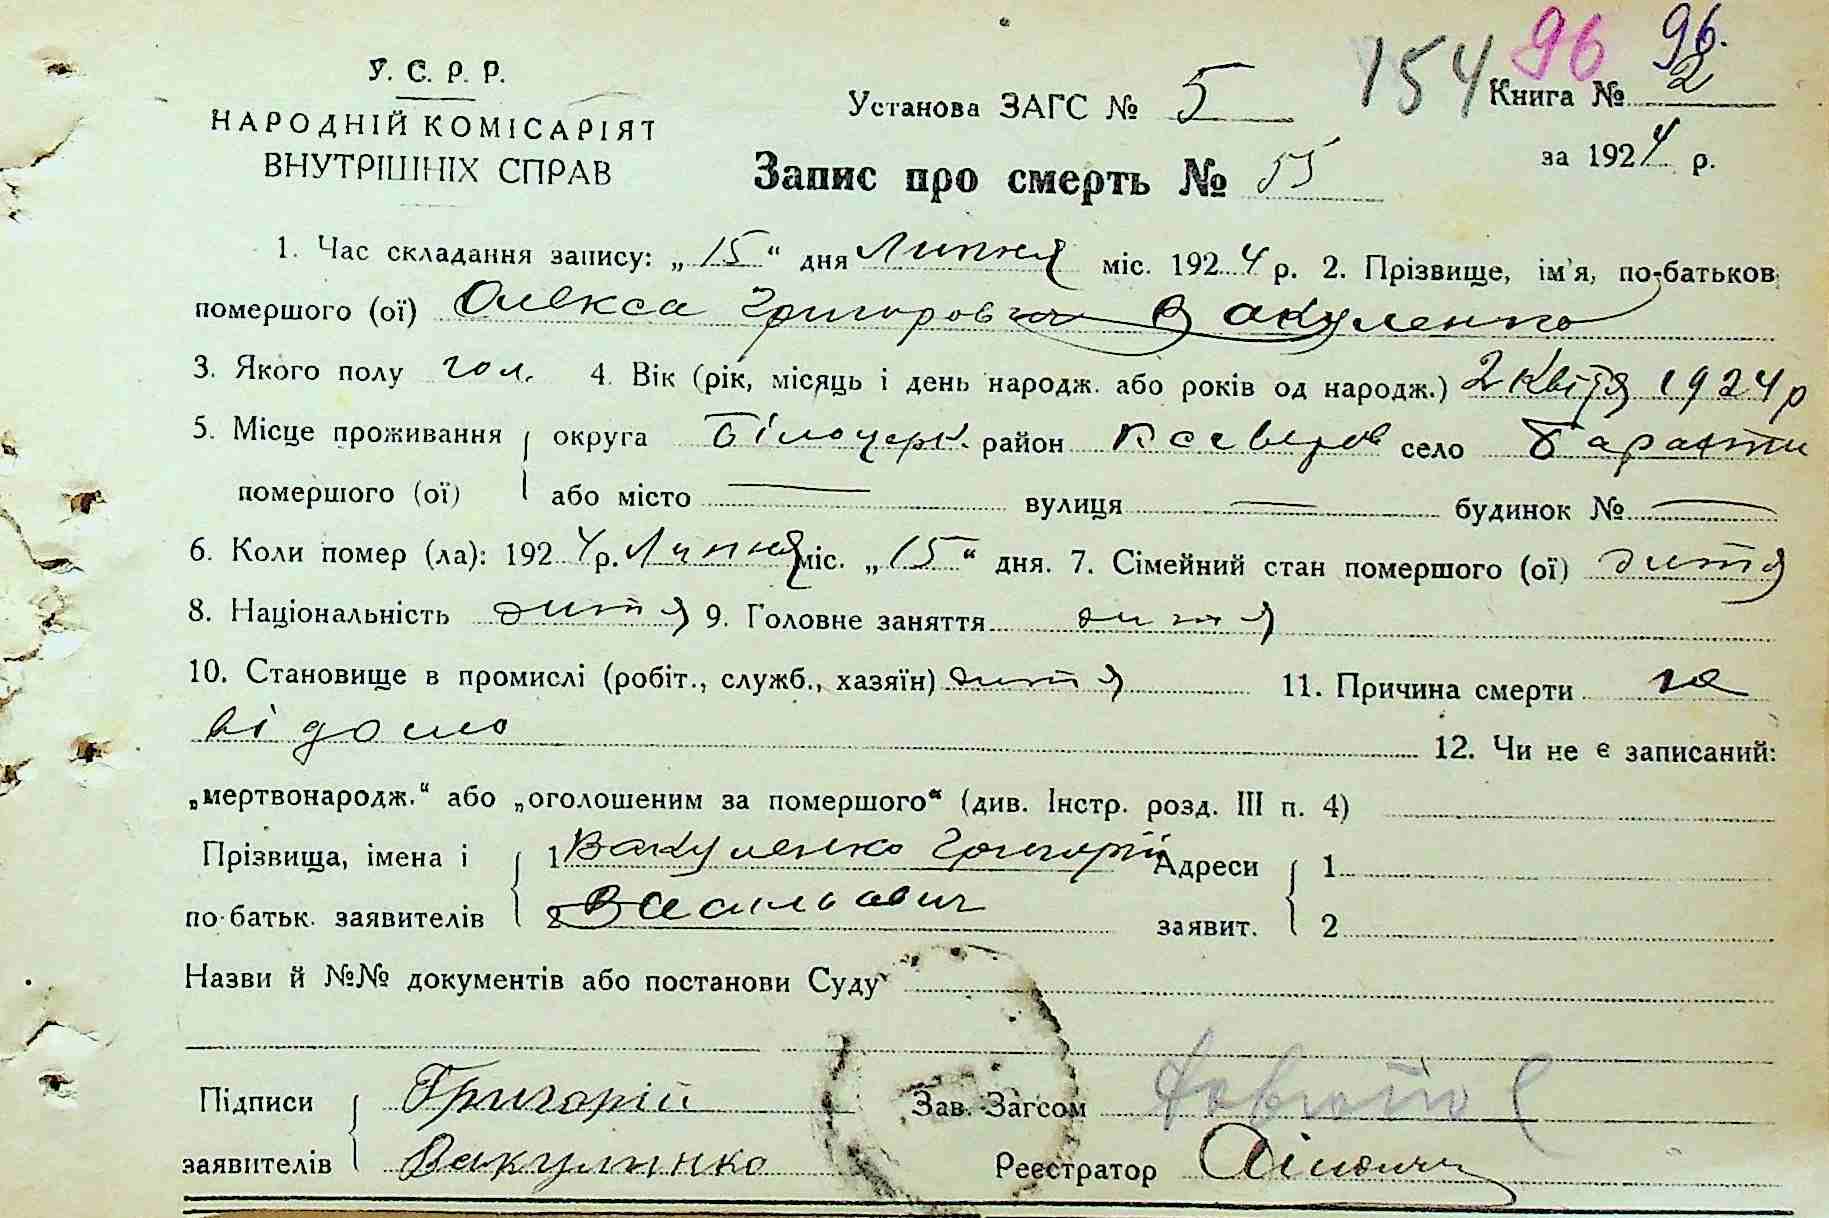 У. С. Р. Р.
НАРОДНІЙ КОМІСАРІЯТ
ВНУТРІШНІХ СПРАВ
Установа ЗАГС № 5
154 96 96.
Книга № 2
за 1924 р.
Запис про смерть № 55
1. Час складання запису: „15“ дня Липня міс. 1924 р. 2. Прізвище, ім'я, по-батьков
помершого (ої) Олекса Григорович Вакуленко
3. Якого полу чол. 4. Вік (рік, місяць і день народж. або років од народж.) 2 Квітя 1924 р
5. Місце проживання округа Білоцерк. район село
помершого (ої) або місто — вулиця — будинок № —
6. Коли помер (ла): 1924 р. Липня міс. „15“ дня. 7. Сімейний стан помершого (ої) дитя
8. Національність дитя 9. Головне заняття дитя
10. Становище в промислі (робіт., служб., хазяїн) дитя 11. Причина смерти не
відомо
12. Чи не є записаний:
„мертвонародж.“ або „оголошеним за помершого“ (див. Інстр. розд. III п. 4)
Прізвища, імена і 1 Вакуленко Григорій Адреси 1
по-батьк. заявителів 2 Васильович заявит. 2
Назви й №№ документів або постанови Суду
Підписи Григорій Зав. Загсом
заявителів Вакулинко Реєстратор